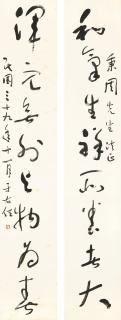 和氣生祥所養者大
秉周先生法正
渾元無外與物為春
民國三十九年十一月 于右任